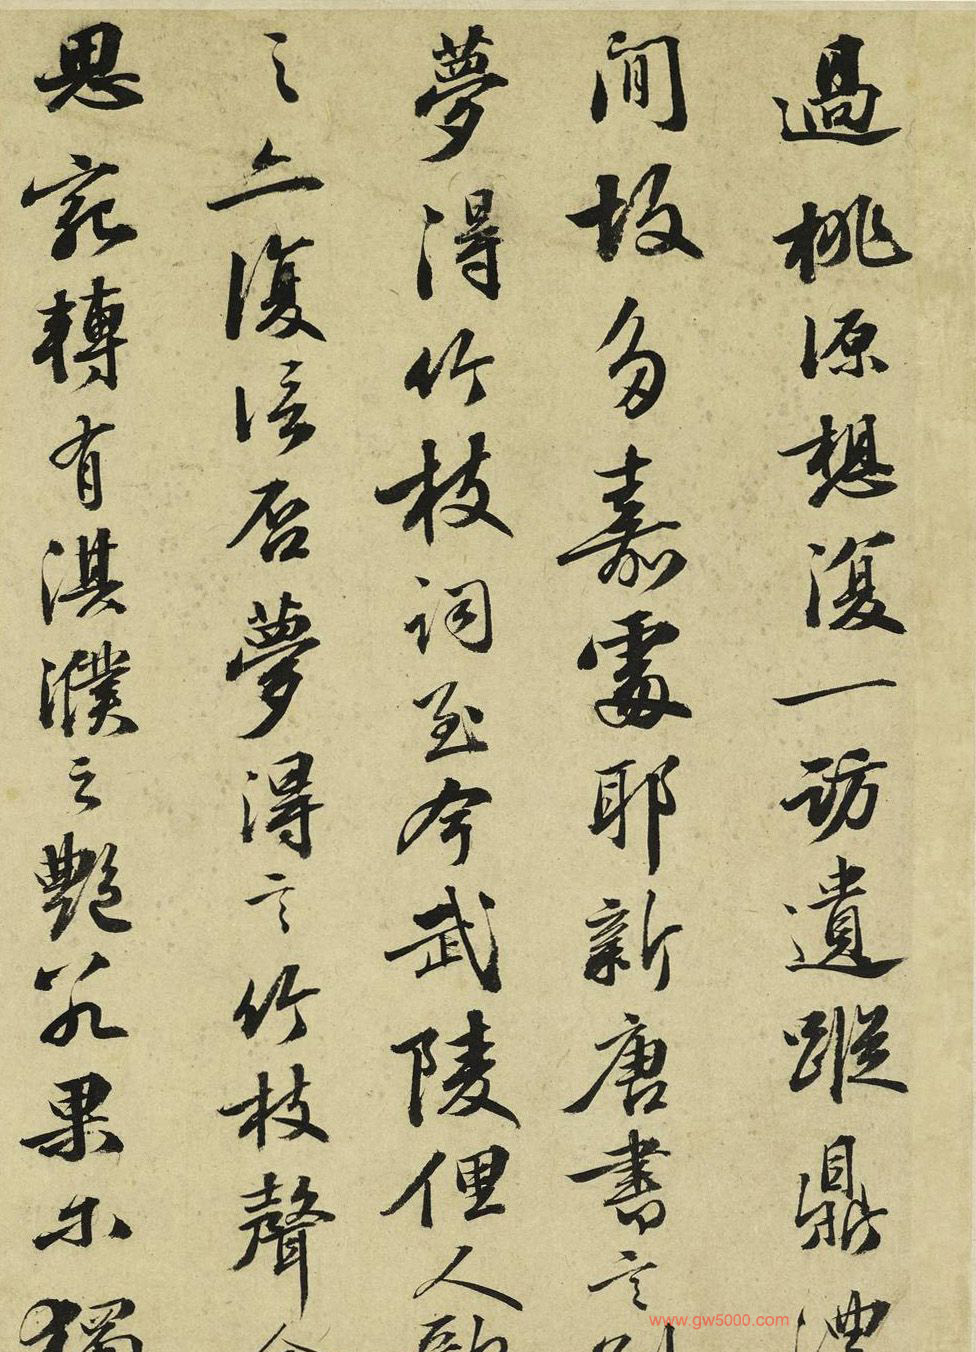 過桃源想復一訪遺蹤鼎澧
間故多嘉處耶新唐書言
夢得竹枝詞至今武陵俚人歌
之亦復信否夢得言竹枝聲
思宛轉有淇濮之艷若果爾獨
www.gw5000.com